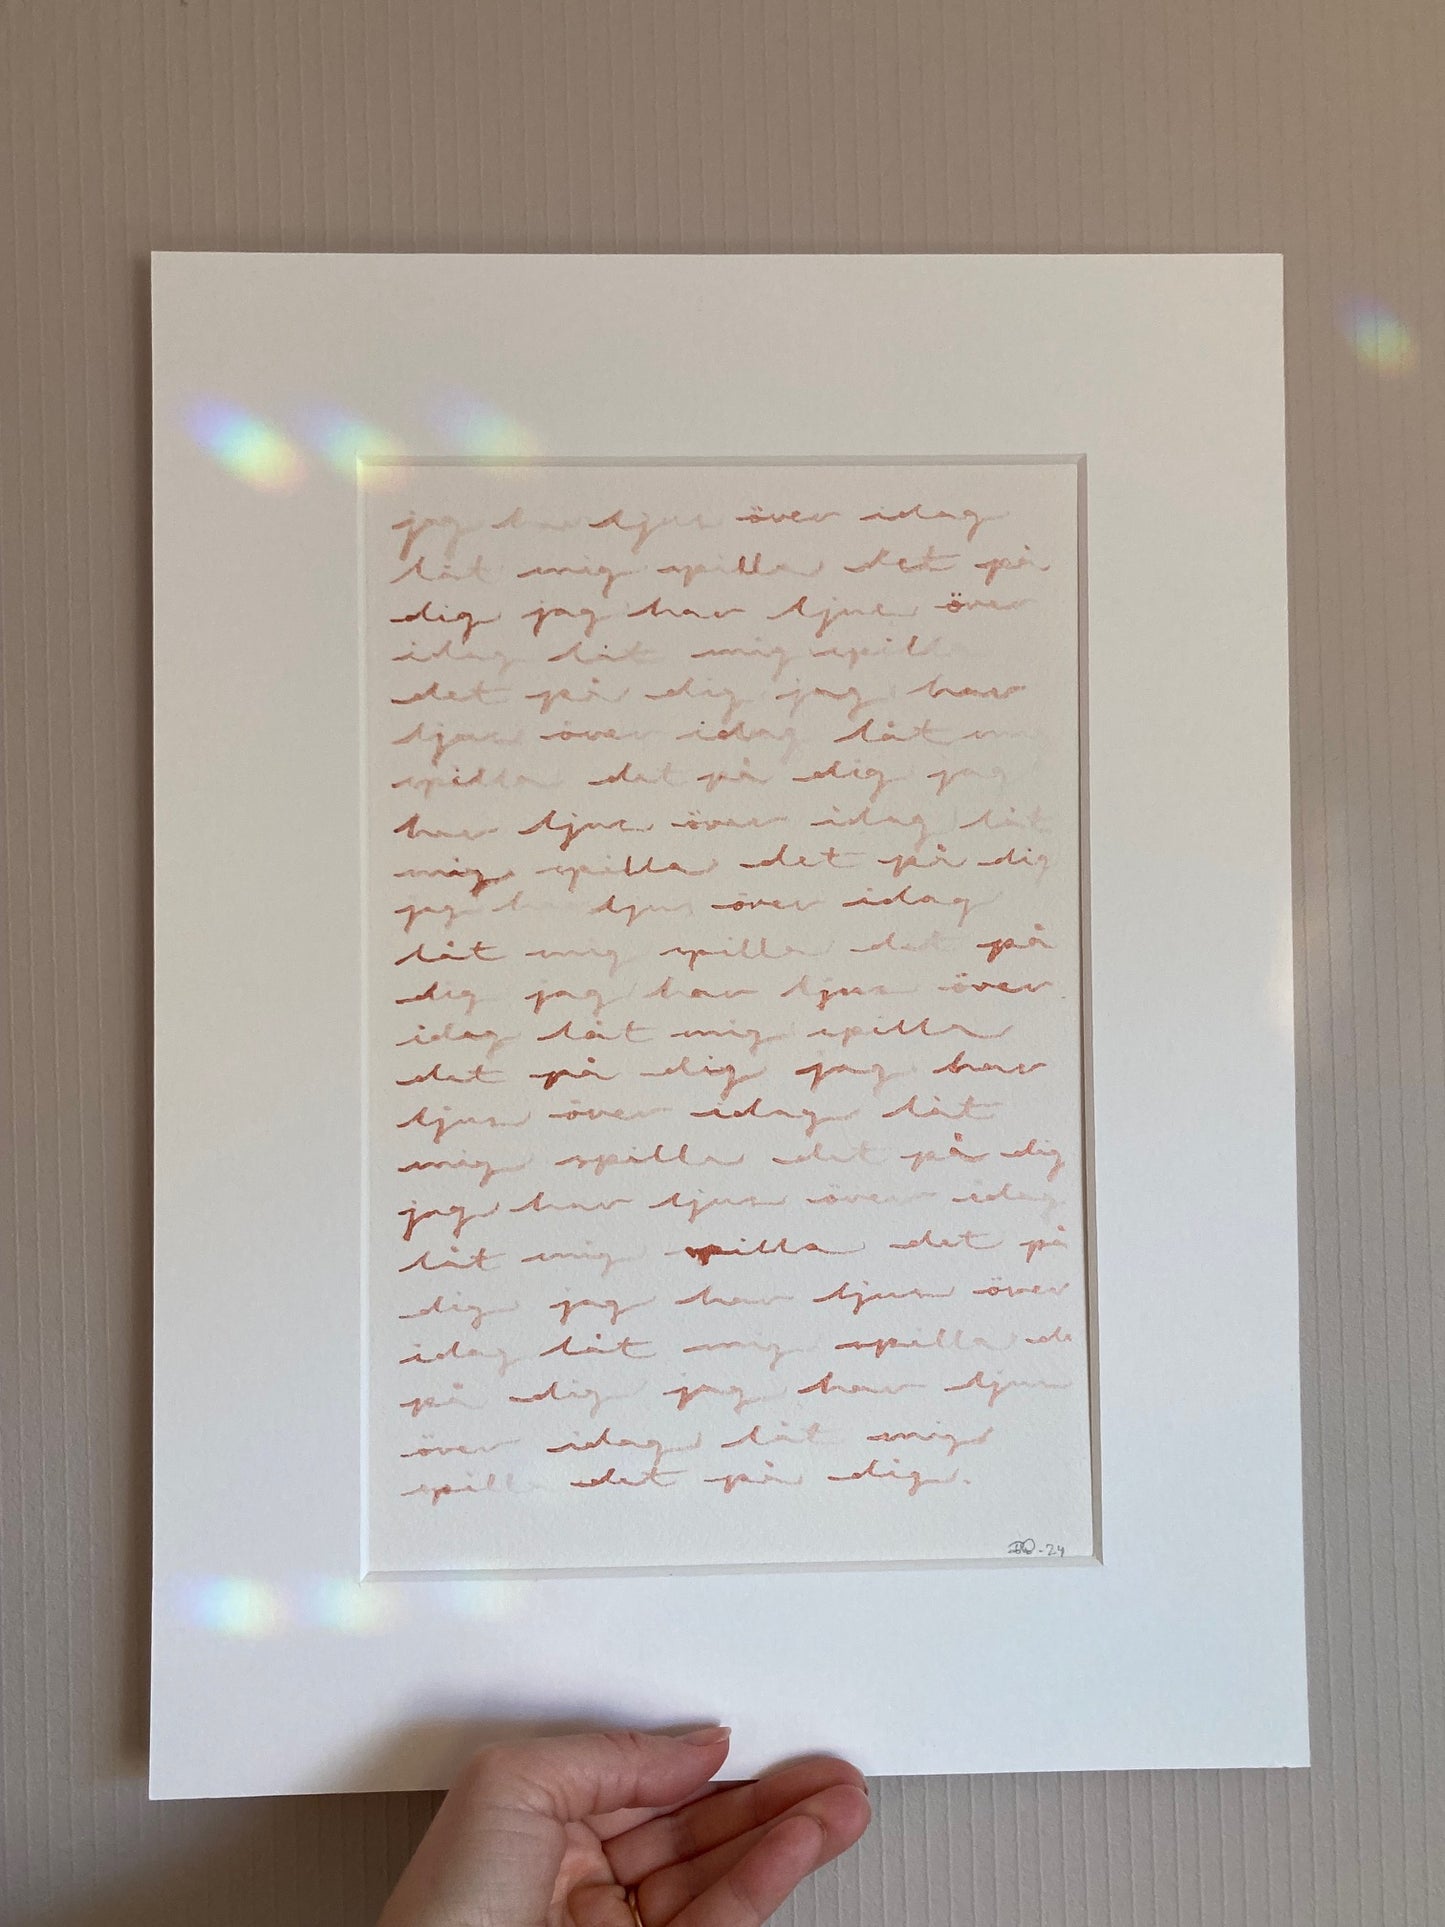 jag har ljus över idag
låt mig spilla det på
dig jag har ljus över
idag låt mig spilla
det på dig jag har
ljus över idag låt m
spilla det på dig jag
har ljus över idag låt
mig spilla det på dig
jag har ljus över idag
låt mig spilla det på
dig jag har ljus över
idag låt mig spilla
det på dig jag har
ljus över idag låt
mig spilla det på dig
jag har ljus över idag
låt mig spilla det på
dig jag har ljus över
idag låt mig spilla de
på dig jag har ljus
över idag låt mig
spilla det på dig.
-24